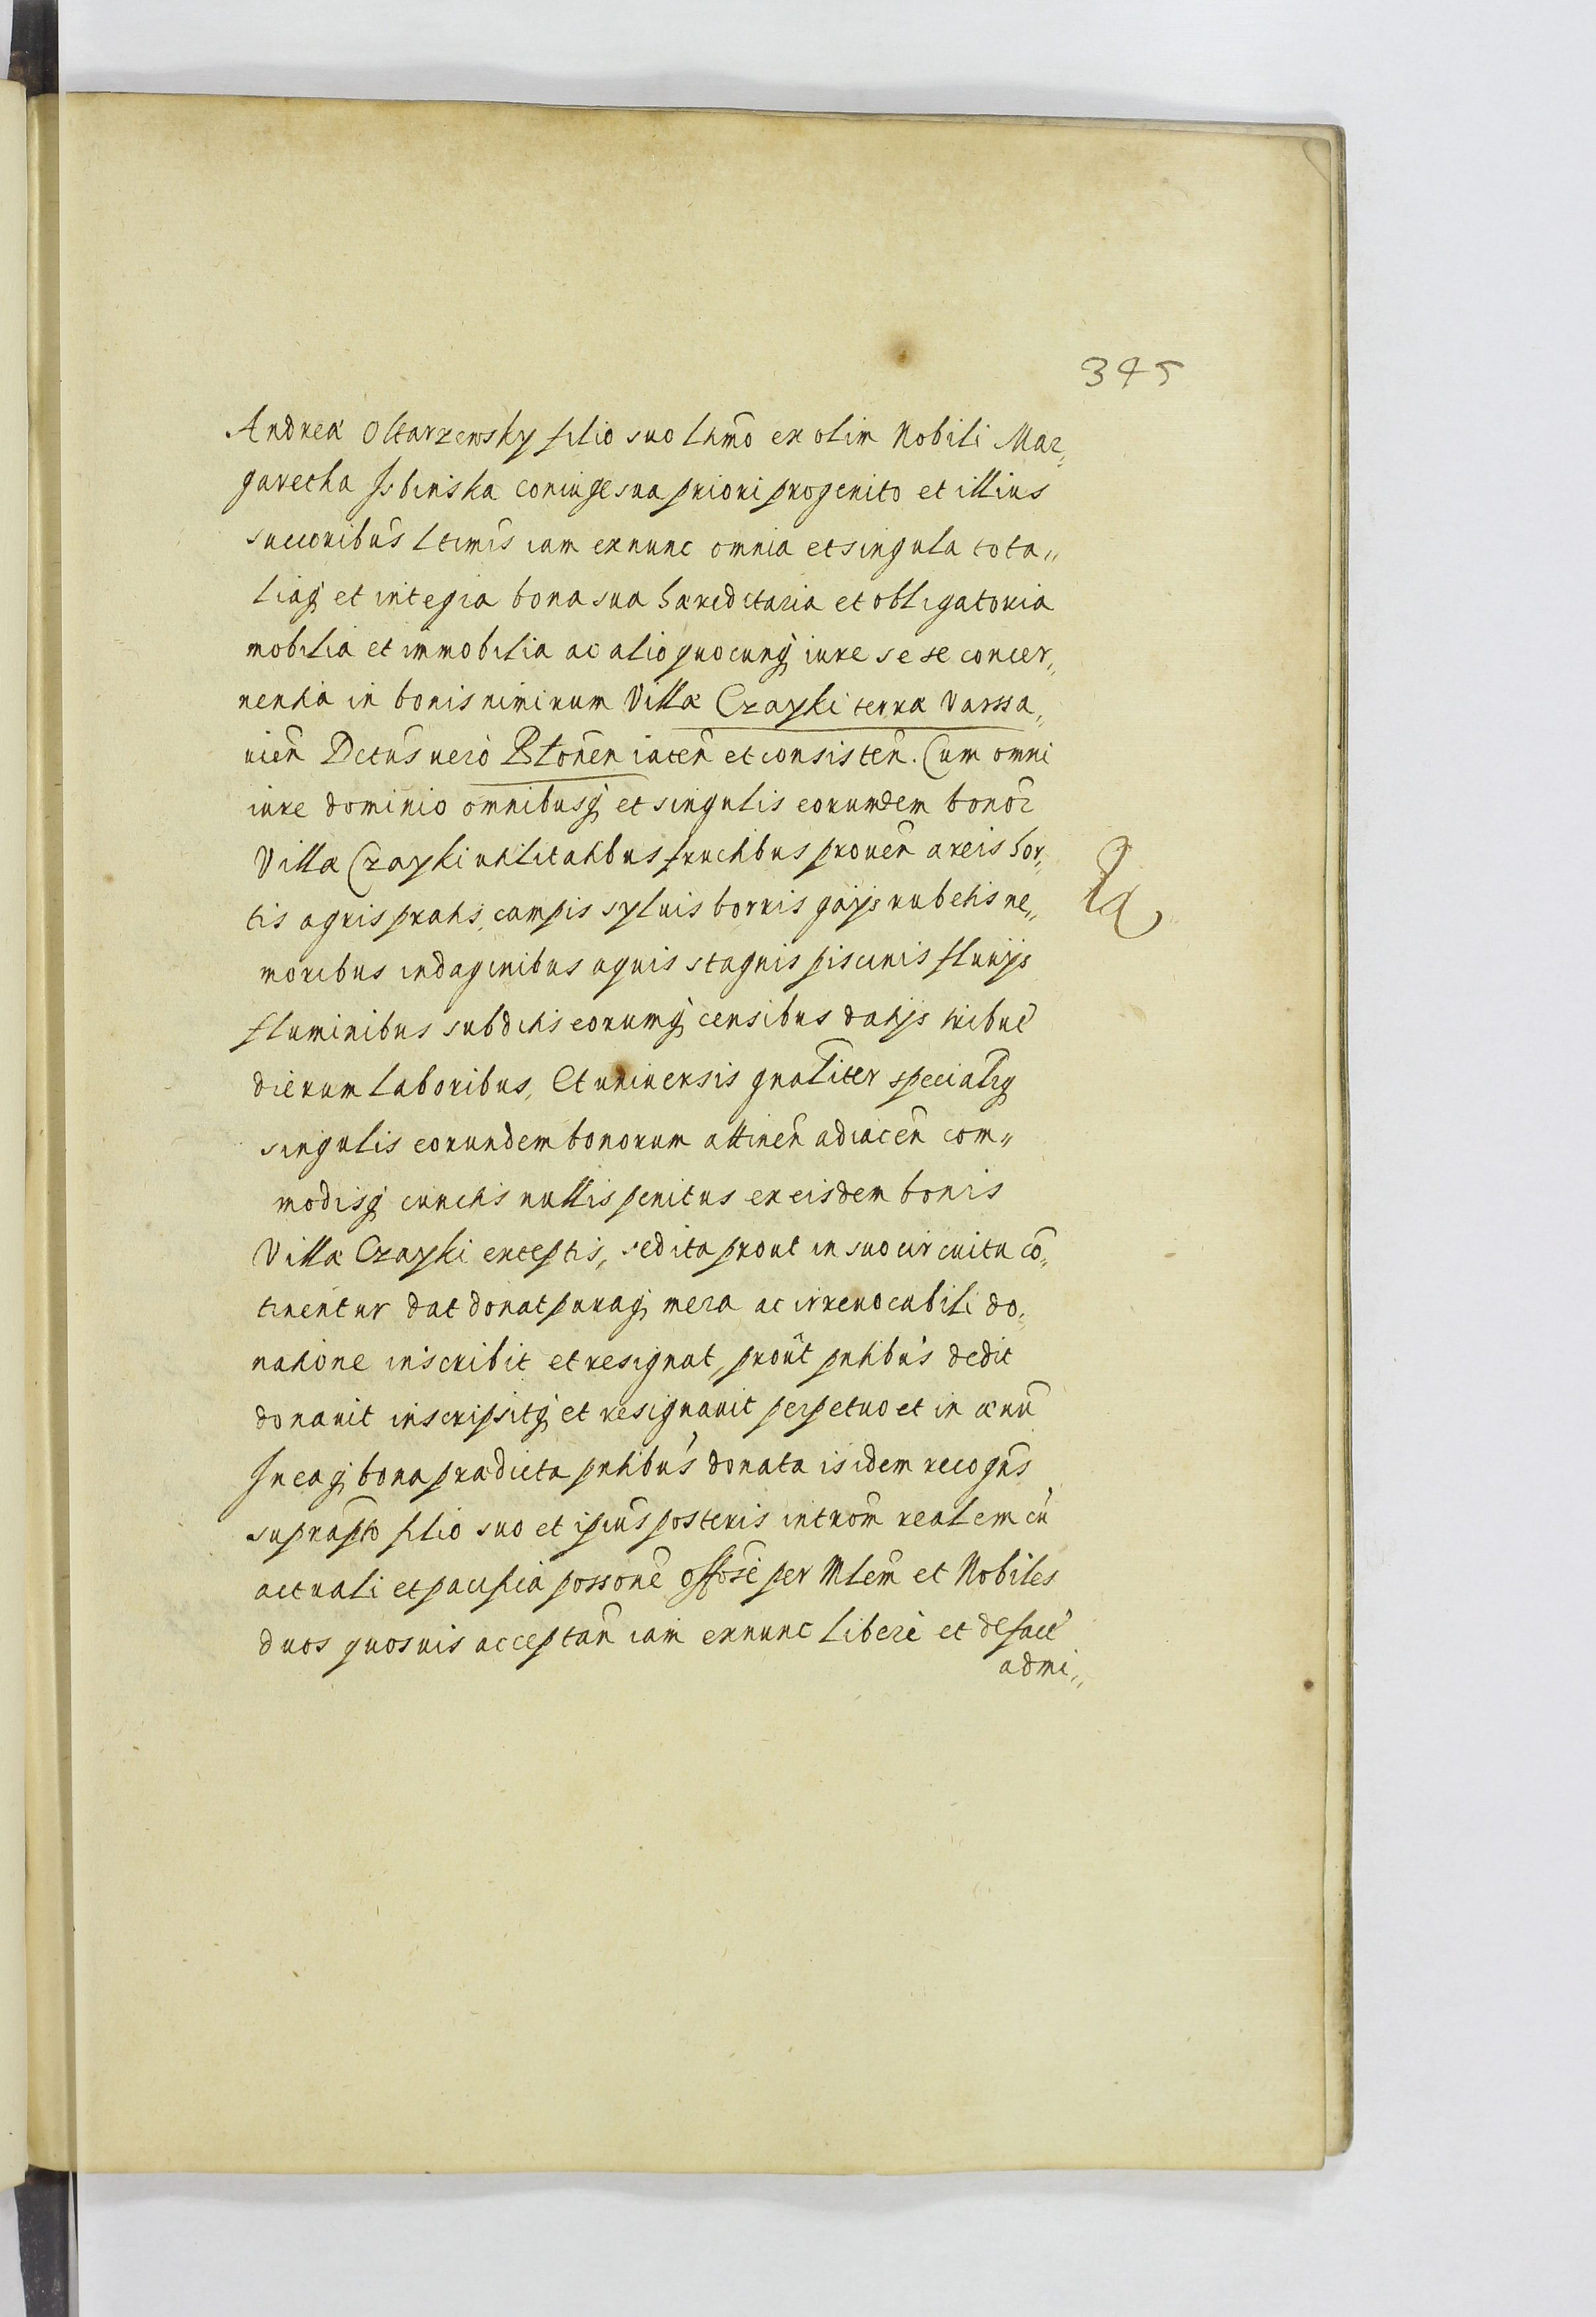 345
Andreæ Ołtarzewsky filio suo lttmo ex olim Nobili Mar„
garetha Jsbinska coniuge sua priori progenito et illius
succoribus lttimis iam exnunc omnia et singula tota„
liaq3 et integra bona sua hæreditaria et obligatoria
mobilia et immobilia ac alio quocunq3 iure sese concer„
nentia in bonis nimirum Villa Czayki terræ Varssa„
uien Dctus uerò Błonen iacen et consisten. Cum omni
iure dominio omnibusq3 et singulis eorumdem bonor
Villæ Czayki utilitatibus fructibus prouen areis hor„
tis agris pratis, campis syluis borris gaijs rubetis ne„
moribus indaginibus aquis stagnis piscinis fluuijs
fluminibus subditis eorumq3 censibus datijs tribut
dierum laboribus, Et uniuersis gnaliter specialrq3
singulis eorundem bonorum attinen adiacen com„
modisq3 cunctis nullis penitus ex eisdem bonis
Villæ Czayki exceptis, sed ita prout in suo circuitu co„
tinentur dat donat puraq3 mera ac irreuocabili do„
natione inscribit et resignat, prout pntibus dedit
donauit inscripsitq3 et resignauit perpetuo et in æuu
Jn eaq3 bona prædicta pntibus donata is idem recogns
suprapto filio suo et ipius posteris introm realem cu
actuali et pacifica possone offose per Mlem et Nobiles
duos quosuis acceptan iam exnunc liberè et defacto
admi„